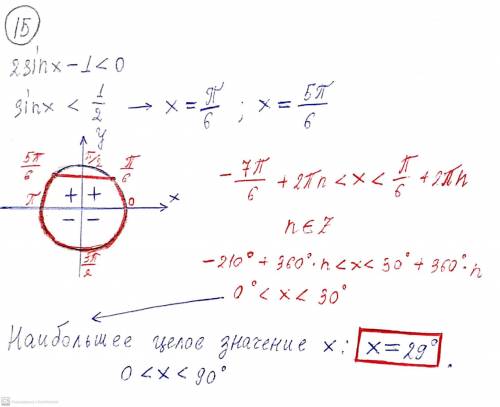 15
2sinx-1<0
sinx < 1/2 → x = π/6 ; x = 5π/6
y
5π/6 π/2 π/6
+ +
π 0 x
- -
3π/2
-7π/6 + 2πn < x < π/6 + 2πn
n∈Z
-210° + 360°·n < x < 30° + 360°·n
0° < x < 30°
Наибольшее целое значение x: x = 29°.
0 < x < 90°